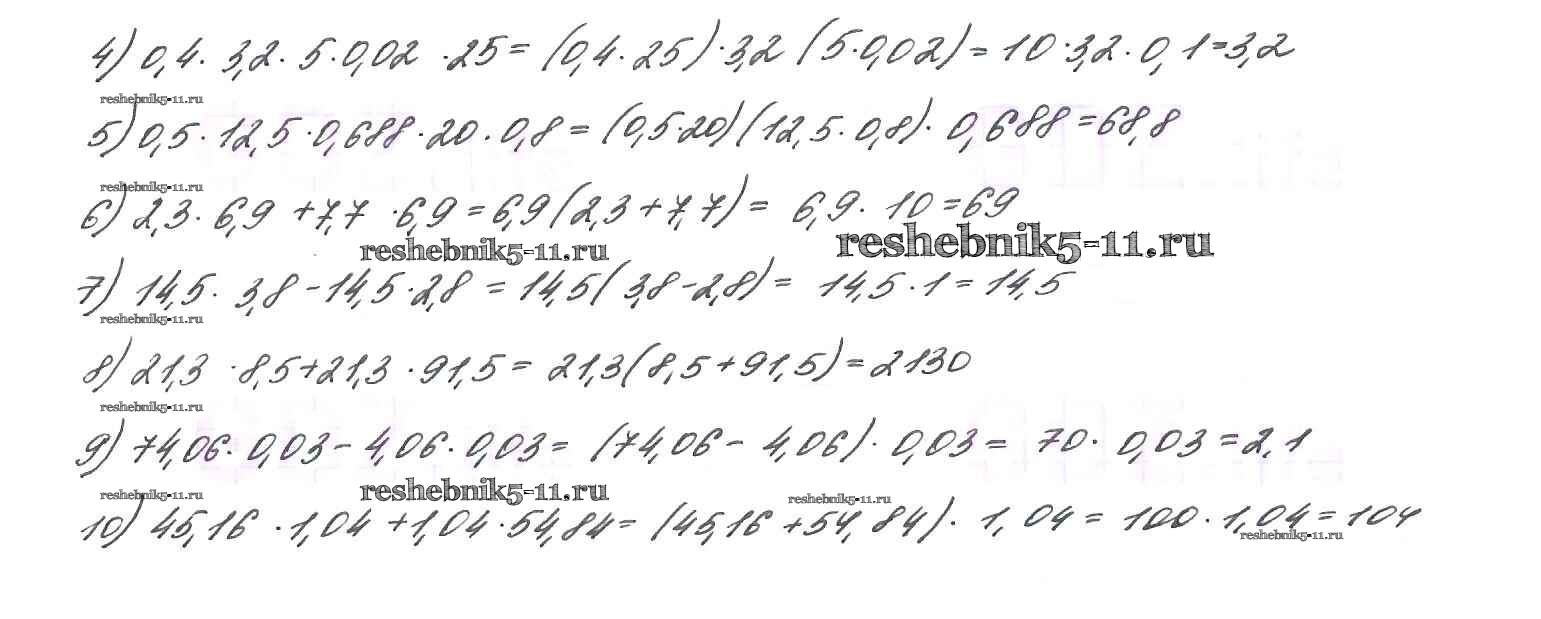 4) 0,4 · 3,2 · 5 · 0,02 · 25 = (0,4 · 25) · 3,2 (5 · 0,02) = 10 · 3,2 · 0,1 = 3,2
reshebnik5-11.ru
5) 0,5 · 12,5 · 0,688 · 20 · 0,8 = (0,5 · 20) (12,5 · 0,8) · 0,688 = 68,8
reshebnik5-11.ru
6) 2,3 · 6,9 + 7,7 · 6,9 = 6,9 (2,3 + 7,7) = 6,9 · 10 = 69
reshebnik5-11.ru reshebnik5-11.ru
7) 14,5 · 3,8 - 14,5 · 2,8 = 14,5 (3,8 - 2,8) = 14,5 · 1 = 14,5
reshebnik5-11.ru
8) 21,3 · 8,5 + 21,3 · 91,5 = 21,3 (8,5 + 91,5) = 2130
reshebnik5-11.ru
9) 74,06 · 0,03 - 4,06 · 0,03 = (74,06 - 4,06) · 0,03 = 70 · 0,03 = 2,1
reshebnik5-11.ru reshebnik5-11.ru reshebnik5-11.ru
10) 45,16 · 1,04 + 1,04 · 54,84 = (45,16 + 54,84) · 1,04 = 100 · 1,04 = 104
reshebnik5-11.ru